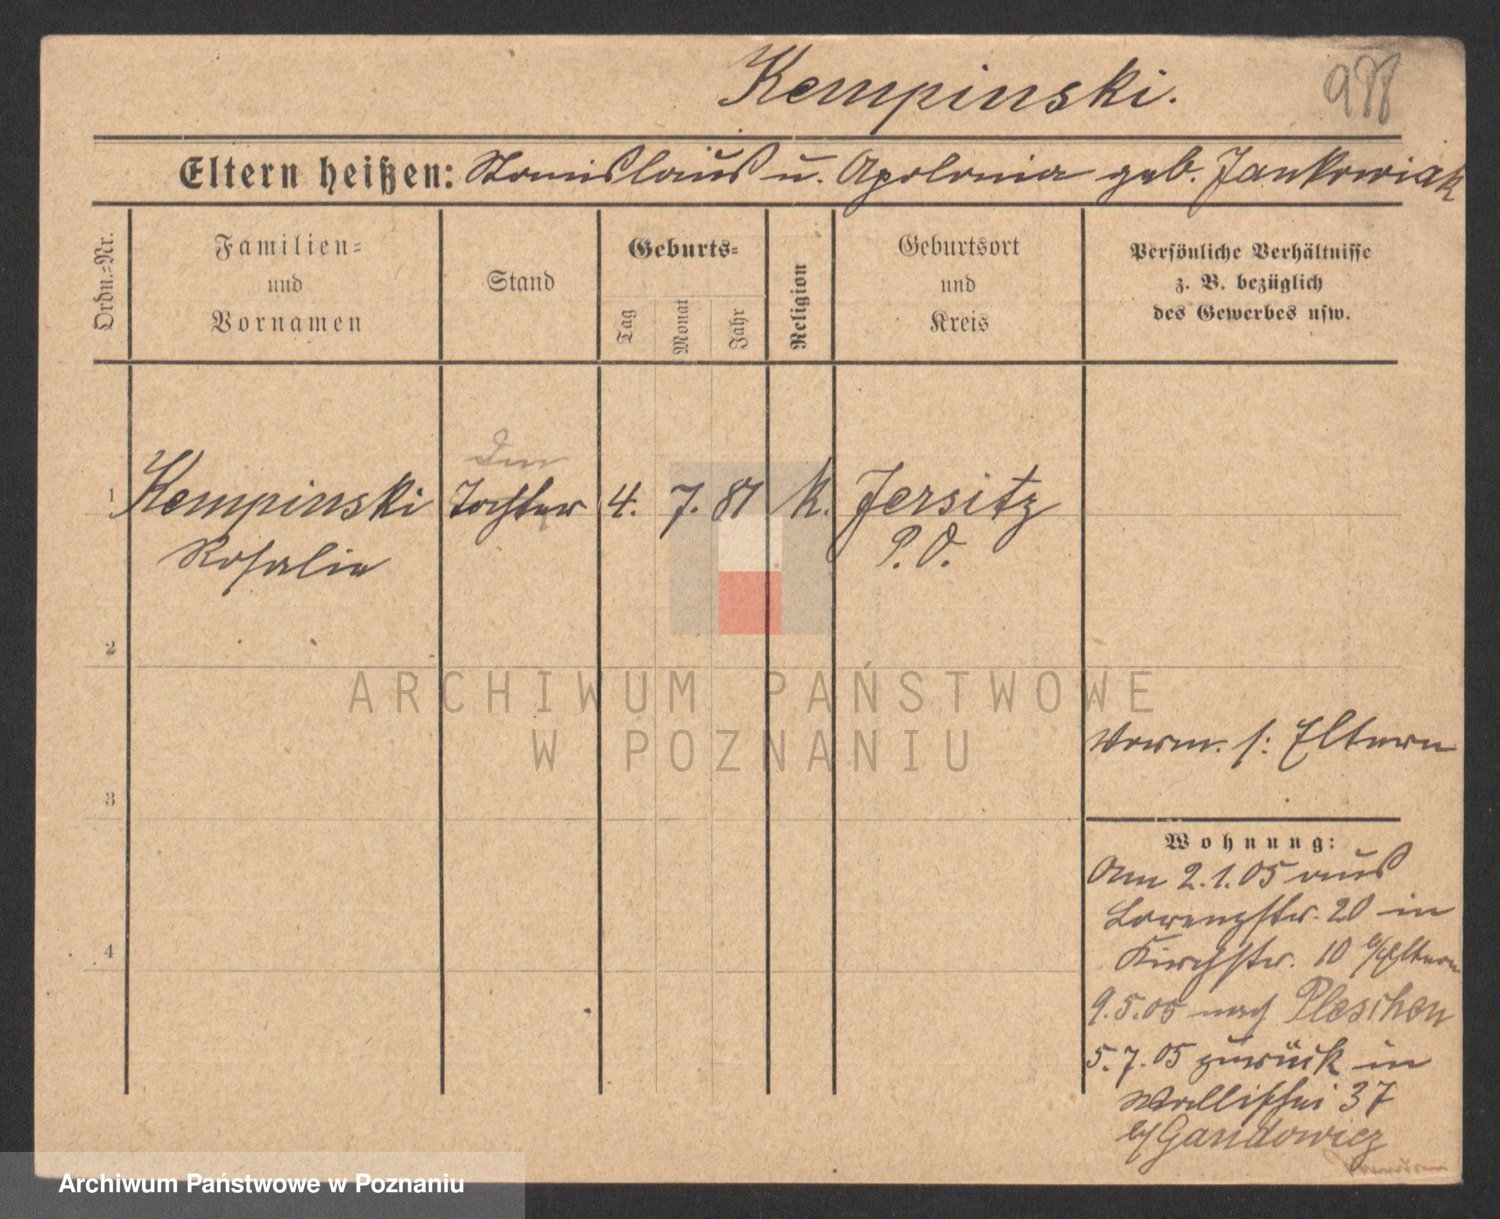 Kempinski.
988
Eltern heißen: Stanislaus u. Apolonia geb. Jankowiak
Ordn.=Nr.
Familien=
und
Vornamen
Stand
Geburts=
Tag
Monat
Jahr
Religion
Geburtsort
und
Kreis
Persönliche Verhältnisse
z. B. bezüglich
des Gewerbes usw.
1 Kempinski Tochter 4. 7. 87 K. Jersitz
Rosalie P. O.
2
ARCHIWUM PAŃSTWOWE
W POZNANIU
Vorm. s: Eltern
3
Wohnung:
Am 2.1.05 aus
Lorenzstr. 20 in
4
Kirchstr. 10 b/Eltern
9.5.05 nach Pleschen
5.7.05 zurück in
Wallischei 37
b/Gandowicz
Archiwum Państwowe w Poznaniu